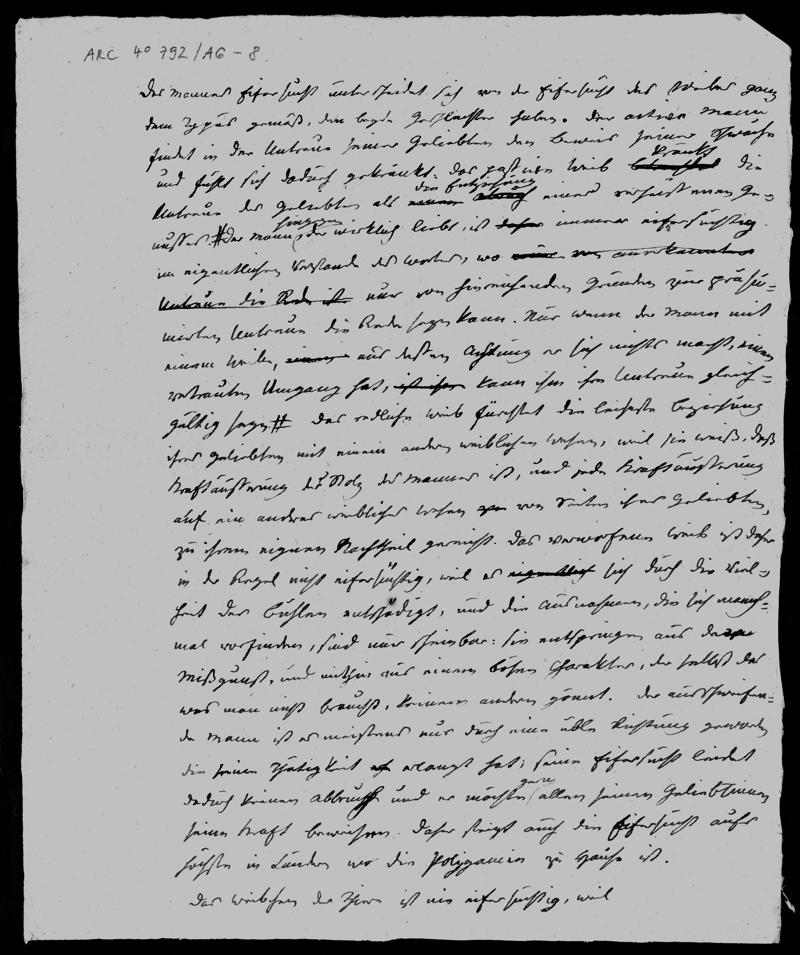 ARC 4° 792/A6-8
Des Mannes Eifersucht unterscheidet sich von der Eifersucht des Weibes ganz
dem Typus gemäß, den beyde Geschlechter haben. Der active Mann
findet in der Untreue seiner Geliebten den Beweis seiner Schwäche
und fühlt sich dadurch gekränkt: das passive Weib kränkt die
Untreue des Geliebten als die Entziehung einer verheissenen Ge-
nusses. # Der Mann hingegen, der wirklich liebt, ist daher immer eifersüchtig
im eigentlichen Verstande des Wortes, wo von anerkannter
Untreue die Rede ist nur von hinreichenden Gründen zur präsu-
mirten Untreue die Rede seyn kann. Nur wenn der Mann mit
einem Weibe, aus dessen Achtung er sich nichts macht, einen
vertrauten Umgang hat, ist ihm kann ihm ihre Untreue gleich-
gültig seyn # Das redliche Weib fürchtet die leiseste Beziehung
ihres Geliebten mit einem andern weiblichen Wesen, weil sie weiß, daß
Kraftäusserung der Stolz des Mannes ist, und jede Kraftäusserung
auf ein anderes weibliches Wesen von Seiten ihres Geliebten,
zu ihrem eignen Nachtheil gereicht. Das verworfene Weib ist daher
in der Regel nicht eifersüchtig, weil es eigentlich sich durch die Viel-
heit der Buhlen entschädigt, und die Ausnahmen, die sich manch-
mal vorfinden, sind nur scheinbar: sie entspringen aus der
Mißgunst, und mithin aus einem bösen Charakter, der selbst das
was man nicht braucht, keinem andern gönnt. Der ausschweifen-
de Mann ist es meistens nur durch eine üble Richtung geworden
die seine Thätigkeit erlangt hat; seine Eifersucht leidet
dadurch keinen Abbruch und er möchte gern allen seinen Geliebtinnen
seine Kraft beweisen. Daher steigt auch die Eifersucht aufs
höchste in Ländern wo die Polygamie zu Hause ist.
Das Weibchen der Thiere ist nie eifersüchtig, weil